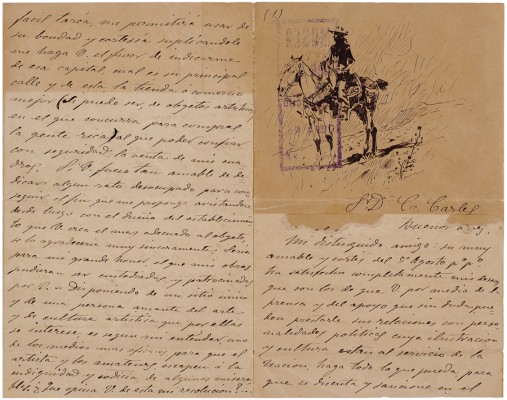 facil tarea, me permitirá usar de
su bondad y cortesía suplicándole
me haga V. el favor de indicarme
de esa capital cual es su principal
calle y de esta la tienda o comercio
mejor (si puede ser, de objetos artísticos)
en el que concurra para comprar
la gente rica) al que poder confiar
con seguridad la venta de mis cua
dros. Si V. fuese tan amable de de
dicar algun rato desocupado para con
seguir el fin que me propongo avistandose
desde luego con el dueño del establecimien
to que V. crea el mas adecuado al objeto,
se lo agradeceria muy sinceramente. Seria
para mi grande honor, el que mis obras
pudieran ser custodiadas y patrocinadas
por V. Disponiendo de un sitio unico
y de una persona amante del arte
y de cultura artistica que por ellas
se interese, es segun mi entender uno
de los medios mas eficaces para que el
artista y los amateurs escapen á la
indignidad y codicia de algunos misera
bles. ¿Que opina V. de esta mi resolucion?
(1)
Sr D. C. Carlés
Buenos
Mi distinguido amigo: su muy
amable y cortés del 5 Agosto p.º p.º
ha satisfecho completamente mis deseos
que son los de que V. por medio de la
prensa y del apoyo que sin duda pue
den prestarle sus relaciones con perso
nalidades politicas cuya ilustracion
y cultura estan al servicio de la
Nacion, haga todo lo que pueda, para
que se discuta y sancione en el